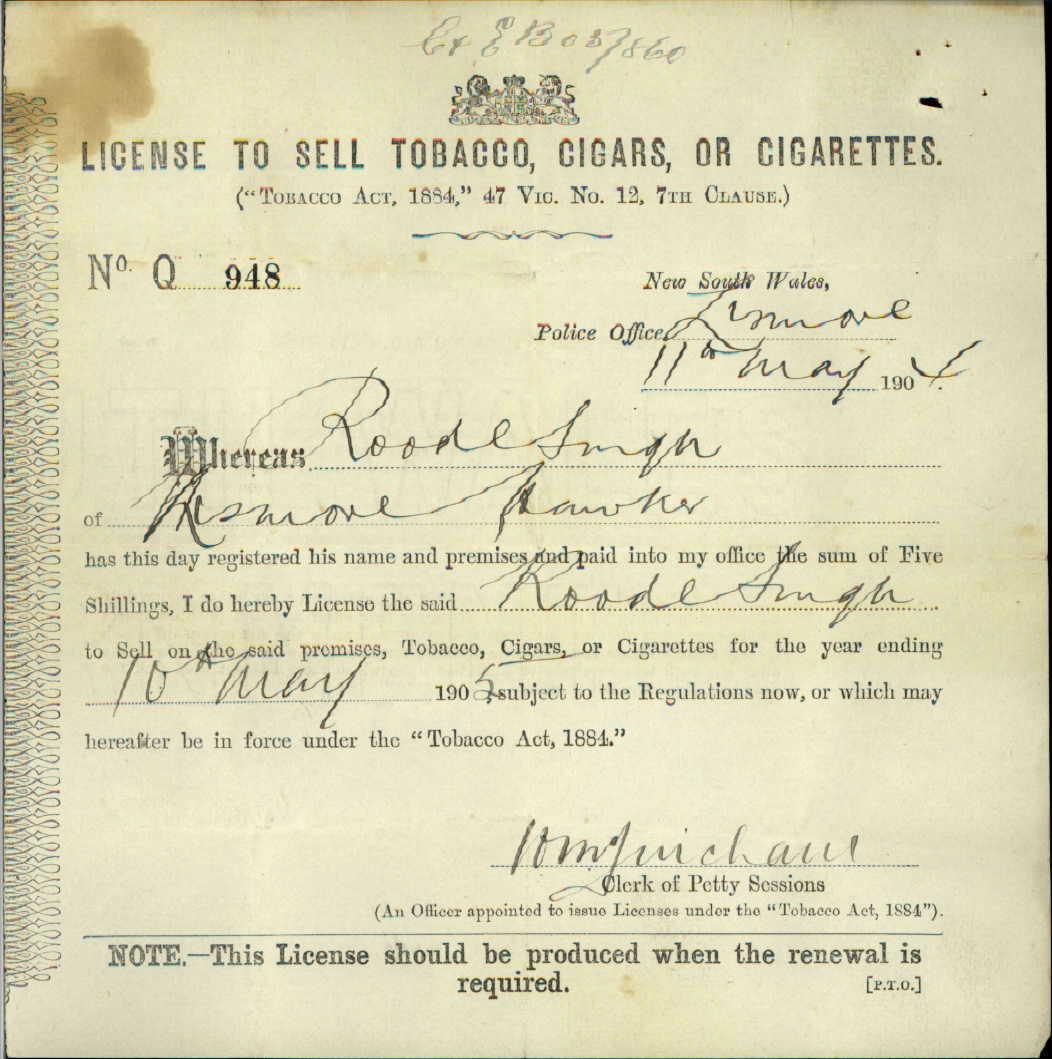 LICENSE TO SELL TOBACCO, CIGARS, OR CIGARETTES.
("TOBACCO ACT, 1884," 47 VIC. NO. 12, 7TH CLAUSE.)
No. Q 948
New South Wales,
Police Office, Lismore
11th May 1904.
Whereas Roode Singh
of Lismore Hawker
has this day registered his name and premises and paid into my office the sum of Five
Shillings, I do hereby License the said Roode Singh
to Sell on the said premises, Tobacco, Cigars, or Cigarettes for the year ending
10th May 1905, subject to the Regulations now, or which may
hereafter be in force under the "Tobacco Act, 1884."
Clerk of Petty Sessions
(An Officer appointed to issue Licenses under the "Tobacco Act, 1884").
NOTE.—This License should be produced when the renewal is
required. [P.T.O.]